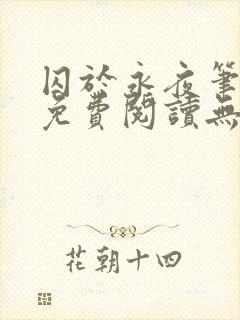 囚於永夜筆
免費閱讀無
花朝十四